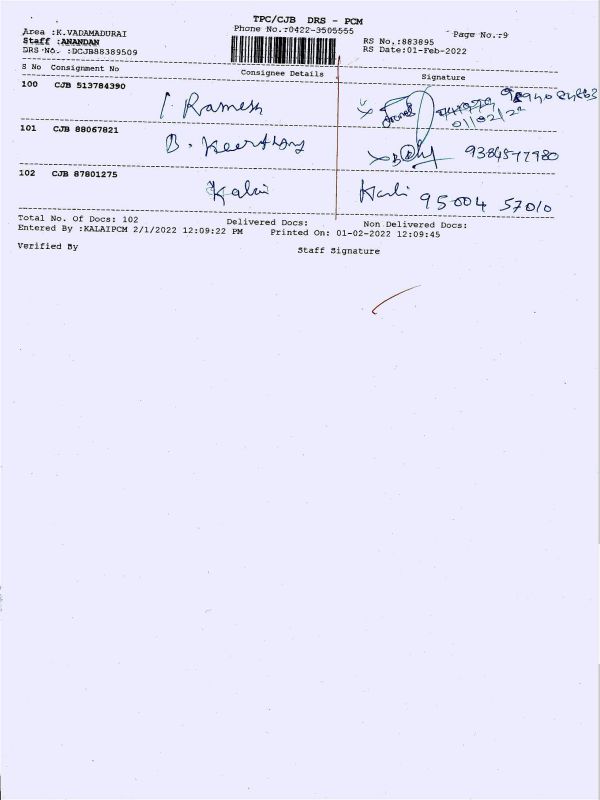 TPC/CJB DRS - PCM
Area :K.VADAMADURAI
Phone No.:0422-3505555
Page No.:9
Staff :ANANDAN
RS No.:883895
DRS No. :DCJB88389509
RS Date:01-Feb-2022
S No Consignment No Consignee Details Signature
100 CJB 513784390
I. Ramesh
01/02/22
101 CJB 88067821
B. Keerthana
9384577980
102 CJB 87801275
Kalai
Kali 95004 57010
Total No. Of Docs: 102 Delivered Docs: Non Delivered Docs:
Entered By :KALAIPCM 2/1/2022 12:09:22 PM Printed On: 01-02-2022 12:09:45
Verified By Staff Signature